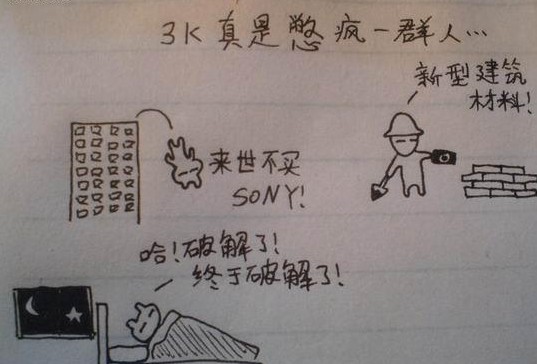 3K真是憋疯一群人…
新型建筑
材料!
来世不买
SONY!
哈!破解了!
终于破解了!